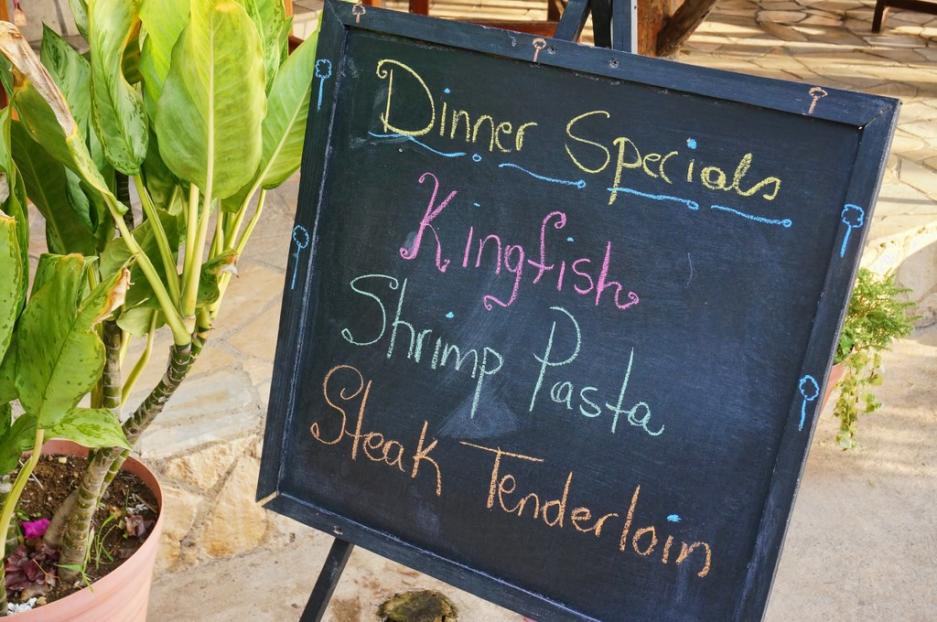 Dinner Specials
Kingfish
Shrimp Pasta
Steak Tenderloin